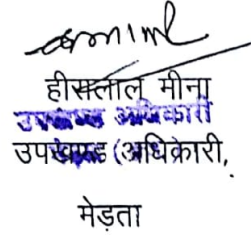 हीरालाल मीना
उपखण्ड अधिकारी
उपखण्ड (अधिकारी,
मेड़ता